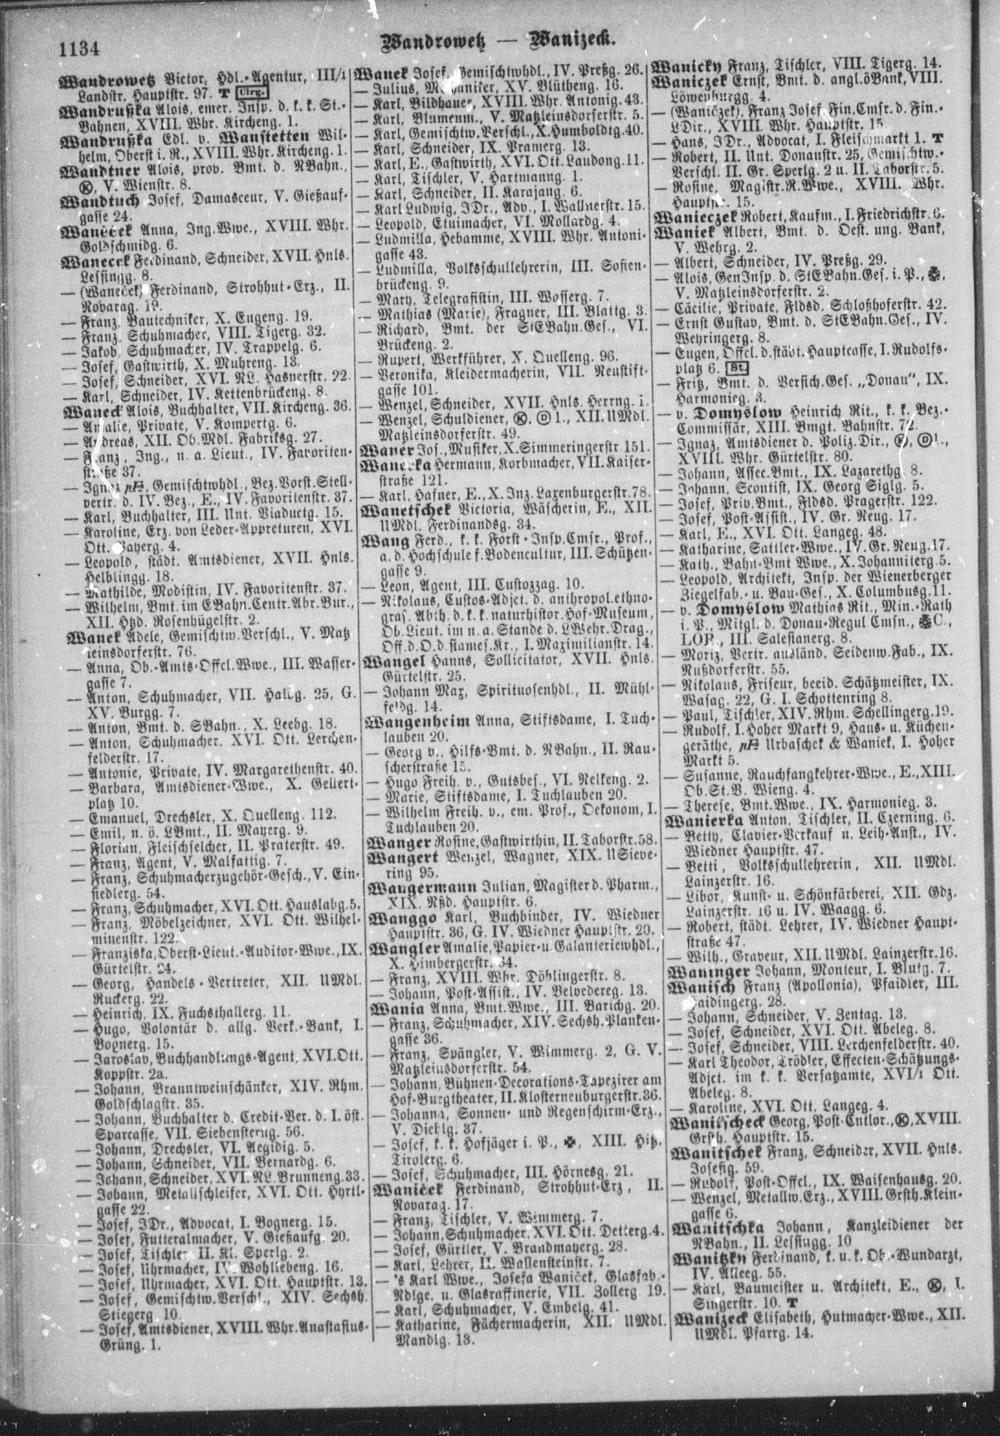 1134
Wandrowetz — Wanizeck.
Wandrowetz Victor, Hdl.-Agentur, III/1
Landstr. Hauptstr. 97. T Clrg.
Wandruška Alois, emer. Insp. d. k. k. St.-
Bahnen, XVIII. Whr. Kircheng. 1.
Wandruška Edl. v. Wanstetten Wil-
helm, Oberst i. R., XVIII. Whr. Kircheng. 1.
Wandtner Alois, prov. Bmt. d. NBahn.,
Ⓚ, V. Wienstr. 8.
Wandtuch Josef, Damasceur, V. Gießauf-
gasse 24.
Waneček Anna, Ing.Wwe., XVIII. Whr.
Goldschmidg. 6.
Waneček Ferdinand, Schneider, XVII. Hnls.
Lessingg. 8.
— (Waneček) Ferdinand, Strohhut-Erz., II.
Novarag. 19.
— Franz, Bautechniker, X. Eugeng. 19.
— Franz, Schuhmacher, VIII. Tigerg. 32.
— Jakob, Schuhmacher, IV. Trappelg. 6.
— Josef, Gastwirth, X. Muhreng. 13.
— Josef, Schneider, XVI. NL. Hasnerstr. 22.
— Karl, Schneider, IV. Kettenbrückeng. 8.
Waneck Alois, Buchhalter, VII. Kircheng. 36.
— Amalie, Private, V. Kompertg. 6.
— Andreas, XII. Ob.Mdl. Fabriksg. 27.
— Franz, Ing., n. a. Lieut., IV. Favoriten-
straße 37.
— Ignaz, Gemischtwhdl., Bez.Vorst.Stell-
vertr. d. IV. Bez., E., IV. Favoritenstr. 37.
— Karl, Buchhalter, III. Unt. Viaductg. 15.
— Karoline, Erz. von Leder-Appreturen, XVI.
Ott. Payerg. 4.
— Leopold, städt. Amtsdiener, XVII. Hnls.
Helblingg. 18.
— Mathilde, Modistin, IV. Favoritenstr. 37.
— Wilhelm, Bmt. im EBahn.Centr.Abr.Bur.,
XII. Htzd. Rosenhügelstr. 2.
Wanek Adele, Gemischtw.Verschl., V. Matz-
leinsdorferstr. 76.
— Anna, Ob.-Amts-Offcl.Wwe., III. Wasser-
gasse 7.
— Anton, Schuhmacher, VII. Halbg. 25, G.
XV. Burgg. 7.
— Anton, Bmt. d. SBahn., X. Leebg. 18.
— Anton, Schuhmacher, XVI. Ott. Lerchen-
felderstr. 17.
— Antonie, Private, IV. Margarethenstr. 40.
— Barbara, Amtsdiener-Wwe., X. Gellert-
platz 10.
— Emanuel, Drechsler, X. Quelleng. 112.
— Emil, n. ö. LBmt., II. Mayerg. 9.
— Florian, Fleischselcher, II. Praterstr. 49.
— Franz, Agent, V. Malfattig. 7.
— Franz, Schuhmacherzugehör-Gesch., V. Ein-
siedlerg. 54.
— Franz, Schuhmacher, XVI. Ott. Hauslabg. 5.
— Franz, Möbelzeichner, XVI. Ott. Wilhel-
minenstr. 122.
— Franziska, Oberst-Lieut.-Auditor-Wwe., IX.
Gürtelstr. 24.
— Georg, Handels-Vertreter, XII. UMdl.
Ruckerg. 22.
— Heinrich, IX. Fuchsthallerg. 11.
— Hugo, Volontär d. allg. Verk.-Bank, I.
Bognerg. 15.
— Jaroslav, Buchhandlungs-Agent, XVI. Ott.
Koppstr. 2a.
— Johann, Branntweinschänker, XIV. Rhm.
Goldschlagstr. 35.
— Johann, Buchhalter d. Credit-Ver. d. I. öst.
Sparcasse, VII. Siebensterng. 56.
— Johann, Drechsler, VI. Aegidig. 5.
— Johann, Schneider, VII. Bernardg. 6.
— Johann, Schneider, XVI. NL. Brunneng. 33.
— Johann, Metallschleifer, XVI. Ott. Hyrtl-
gasse 22.
— Josef, JDr., Advocat, I. Bognerg. 15.
— Josef, Futteralmacher, V. Gießaufg. 20.
— Josef, Tischler, II. Kl. Sperlg. 2.
— Josef, Uhrmacher, IV. Wohllebeng. 16.
— Josef, Uhrmacher, XVI. Ott. Hauptstr. 13.
— Josef, Gemischtw.Verschl., XIV. Sechsh.
Stiegerg. 10.
— Josef, Amtsdiener, XVIII. Whr. Anastasius-
Grüng. 1.
Wanek Josef, Gemischtwhdl., IV. Preßg. 26.
— Julius, Mechaniker, XV. Blütheng. 16.
— Karl, Bildhauer, XVIII. Whr. Antonig. 43.
— Karl, Blumenm., V. Matzleinsdorferstr. 5.
— Karl, Gemischtw.Verschl., X. Humboldtg. 40.
— Karl, Schneider, IX. Pramerg. 13.
— Karl, E., Gastwirth, XVI. Ott. Laudong. 11.
— Karl, Tischler, V. Hartmanng. 1.
— Karl, Schneider, II. Karajang. 6.
— Karl Ludwig, JDr., Adv., I. Wallnerstr. 15.
— Leopold, Etuimacher, VI. Mollardg. 4.
— Ludmilla, Hebamme, XVIII. Whr. Antoni-
gasse 43.
— Ludmilla, Volksschullehrerin, III. Sofien-
brückeng. 9.
— Mary, Telegrafistin, III. Wasserg. 7.
— Mathias (Marie), Fragner, III. Blattg. 3.
— Richard, Bmt. der StEBahn.Ges., VI.
Brückeng. 2.
— Rupert, Werkführer, X. Quelleng. 96.
— Veronika, Kleidermacherin, VII. Neustift-
gasse 101.
— Wenzel, Schneider, XVII. Hnls. Herrng. 1.
— Wenzel, Schuldiener, Ⓚ, Ⓓ1., XII. UMdl.
Matzleinsdorferstr. 49.
Waner Jos., Musiker, X. Simmeringerstr. 151.
Wanerka Hermann, Korbmacher, VII. Kaiser-
straße 121.
— Karl, Hafner, E., X. Inz. Laxenburgerstr. 78.
Wanetschek Victoria, Wäscherin, E., XII.
UMdl. Ferdinandsg. 34.
Wang Ferd., k. k. Forst-Insp.Cmsr., Prof.,
a. d. Hochschule f. Bodencultur, III. Schützen-
gasse 9.
— Leon, Agent, III. Custozzag. 10.
— Nikolaus, Custos-Adjct. d. anthropol.ethno-
graf. Abth. d. k. k. naturhistor. Hof-Museum,
Ob.Lieut. im n. a. Stande d. LWehr. Drag.,
Off. d. O. d. siames. Kr., I. Maximilianstr. 14.
Wangel Hanns, Sollicitator, XVII. Hnls.
Gürtelstr. 25.
— Johann Max, Spirituosenhdl., II. Mühl-
feldg. 14.
Wangenheim Anna, Stiftsdame, I. Tuch-
lauben 20.
— Georg v., Hilfs-Bmt. d. NBahn., II. Rau-
scherstraße 15.
— Hugo Freih. v., Gutsbes., VI. Nelkeng. 2.
— Marie, Stiftsdame, I. Tuchlauben 20.
— Wilhelm Freih. v., em. Prof., Oekonom, I.
Tuchlauben 20.
Wanger Rosine, Gastwirthin, II. Taborstr. 58.
Wangert Wenzel, Wagner, XIX. USieve-
ring 95.
Wangermann Julian, Magister d. Pharm.,
XIX. Nßd. Hauptstr. 6.
Wanggo Karl, Buchbinder, IV. Wiedner
Hauptstr. 36, G. IV. Wiedner Hauptstr. 20.
Wangler Amalie, Papier-u. Galanteriewhdl.,
X. Himbergerstr. 34.
— Franz, XVIII. Whr. Döblingerstr. 8.
— Johann, Post-Assist., IV. Belvedereg. 13.
Wania Anna, Bmt.Wwe., III. Barichg. 20.
— Franz, Schuhmacher, XIV. Sechsh. Planken-
gasse 36.
— Franz, Spängler, V. Wimmerg. 2, G. V.
Matzleinsdorferstr. 54.
— Johann, Bühnen-Decorations-Tapezirer am
Hof-Burgtheater, II. Klosterneuburgerstr. 36.
— Johanna, Sonnen- und Regenschirm-Erz.,
V. Diehlg. 37.
— Josef, k. k. Hofjäger i. P., ✠, XIII. Hitz.
Tirolerg. 6.
— Josef, Schuhmacher, III. Hörnesg. 21.
Waniček Ferdinand, Strohhut-Erz., II.
Novarag. 17.
— Franz, Tischler, V. Wimmerg. 7.
— Johann, Schuhmacher, XVI. Ott. Detterg. 4.
— Josef, Gürtler, V. Brandmayerg. 28.
— Karl, Lehrer, II. Wallensteinstr. 7.
— 's Karl Wwe., Josefa Waniček, Glasfab.-
Ndlge. u. Glasraffinerie, VII. Zollerg. 19.
— Karl, Schuhmacher, V. Embelg. 41.
— Katharine, Fächermacherin, XII. UMdl.
Mandlg. 13.
Wanicky Franz, Tischler, VIII. Tigerg. 14.
Waniczek Ernst, Bmt. d. angl. öBank, VIII.
Löwenburgg. 4.
— (Waniczek), Franz Josef, Fin.Cmsr. d. Fin.-
LDir., XVIII. Whr. Hauptstr. 15.
— Hans, JDr., Advocat, I. Fleischmarkt 1. T
— Robert, II. Unt. Donaustr. 25, Gemischtw.-
Verschl. II. Gr. Sperlg. 2 u. II. Taborstr. 5.
— Rosine, Magistr.R.Wwe., XVIII. Whr.
Hauptstr. 15.
Wanieczek Robert, Kaufm., I. Friedrichstr. 6.
Waniek Albert, Bmt. d. Oest. ung. Bank,
V. Wehrg. 2.
— Albert, Schneider, IV. Preßg. 29.
— Alois, GenInsp. d. StEBahn.Ges. i. P., ✠,
V. Matzleinsdorferstr. 2.
— Cäcilie, Private, Fldsd. Schloßhoferstr. 42.
— Ernst Gustav, Bmt. d. StEBahn.Ges., IV.
Weyringerg. 8.
— Eugen, Offcl. d. städt. Hauptcasse, I. Rudolfs-
platz 6. St.
— Fritz, Bmt. d. Versich.Ges. „Donau“, IX.
Harmonieg. 3.
— v. Domyslow Heinrich Rit., k. k. Bez.-
Commissär, XVIII. Bmgt. Bahnstr. 72.
— Ignaz, Amtsdiener d. Poliz.Dir., Ⓚ, Ⓓ1.,
XVIII. Whr. Gürtelstr. 80.
— Johann, Assec.Bmt., IX. Lazarethg. 8.
— Johann, Scontist, IX. Georg Siglg. 5.
— Josef, Priv.Bmt., Fldsd. Pragerstr. 122.
— Josef, Post-Assist., IV. Gr. Neug. 17.
— Karl, E., XVI. Ott. Langeg. 48.
— Katharine, Sattler-Wwe., IV. Gr. Neug. 17.
— Kath., Bahn-Bmt. Wwe., X. Johanniterg. 5.
— Leopold, Architekt, Insp. der Wienerberger
Ziegelfab.- u. Bau-Ges., X. Columbusg. 11.
— v. Domyslow Mathias Rit., Min.-Rath
i. P., Mitgl. d. Donau-Regul Cmsn., ✠C.,
LOP., III. Salesianerg. 8.
— Moriz, Vertr. ausländ. Seidenw.Fab., IX.
Nußdorferstr. 55.
— Nikolaus, Friseur, beeid. Schätzmeister, IX.
Wasag. 22, G. I. Schottenring 8.
— Paul, Tischler, XIV. Rhm. Schellingerg. 19.
— Rudolf, I. Hoher Markt 9, Haus- u. Küchen-
geräthe, Urbaschek & Waniek, I. Hoher
Markt 5.
— Susanne, Rauchfangkehrer-Wwe., E., XIII.
Ob.St.V. Wieng. 4.
— Therese, Bmt.Wwe., IX. Harmonieg. 3.
Wanierka Anton, Tischler, II. Czerning. 6.
— Betty, Clavier-Verkauf u. Leih-Anst., IV.
Wiedner Hauptstr. 47.
— Betti, Volksschullehrerin, XII. UMdl.
Lainzerstr. 16.
— Libor, Kunst- u. Schönfärberei, XII. Gdz.
Lainzerstr. 16 u. IV. Waagg. 6.
— Robert, städt. Lehrer, IV. Wiedner Haupt-
straße 47.
— Wilh., Graveur, XII. UMdl. Lainzerstr. 16.
Waninger Johann, Monteur, I. Blutg. 7.
Wanisch Franz (Apollonia), Pfaidler, III.
Haidingerg. 28.
— Johann, Schneider, V. Zentag. 13.
— Josef, Schneider, XVI. Ott. Abeleg. 8.
— Josef, Schneider, VIII. Lerchenfelderstr. 40.
— Karl Theodor, Trödler, Effecten-Schätzungs-
Adjct. im k. k. Versatzamte, XVI/1 Ott.
Abeleg. 8.
— Karoline, XVI. Ott. Langeg. 4.
Wanischeck Georg, Post-Cntlor., Ⓚ, XVIII.
Grsth. Hauptstr. 15.
Wanitschek Franz, Schneider, XVII. Hnls.
Josefig. 59.
— Rudolf, Post-Offcl., IX. Waisenhausg. 20.
— Wenzel, Metallw.Erz., XVIII. Grsth. Klein-
gasse 6.
Wanitschka Johann, Kanzleidiener der
NBahn., II. Lessingg. 10
Wanitzky Ferdinand, k. u. k. Ob.-Wundarzt,
IV. Alleeg. 55.
— Karl, Baumeister u. Architekt, E., Ⓚ, I.
Singerstr. 10. T
Wanizeck Elisabeth, Hutmacher-Wwe., XII.
UMdl. Pfarrg. 14.